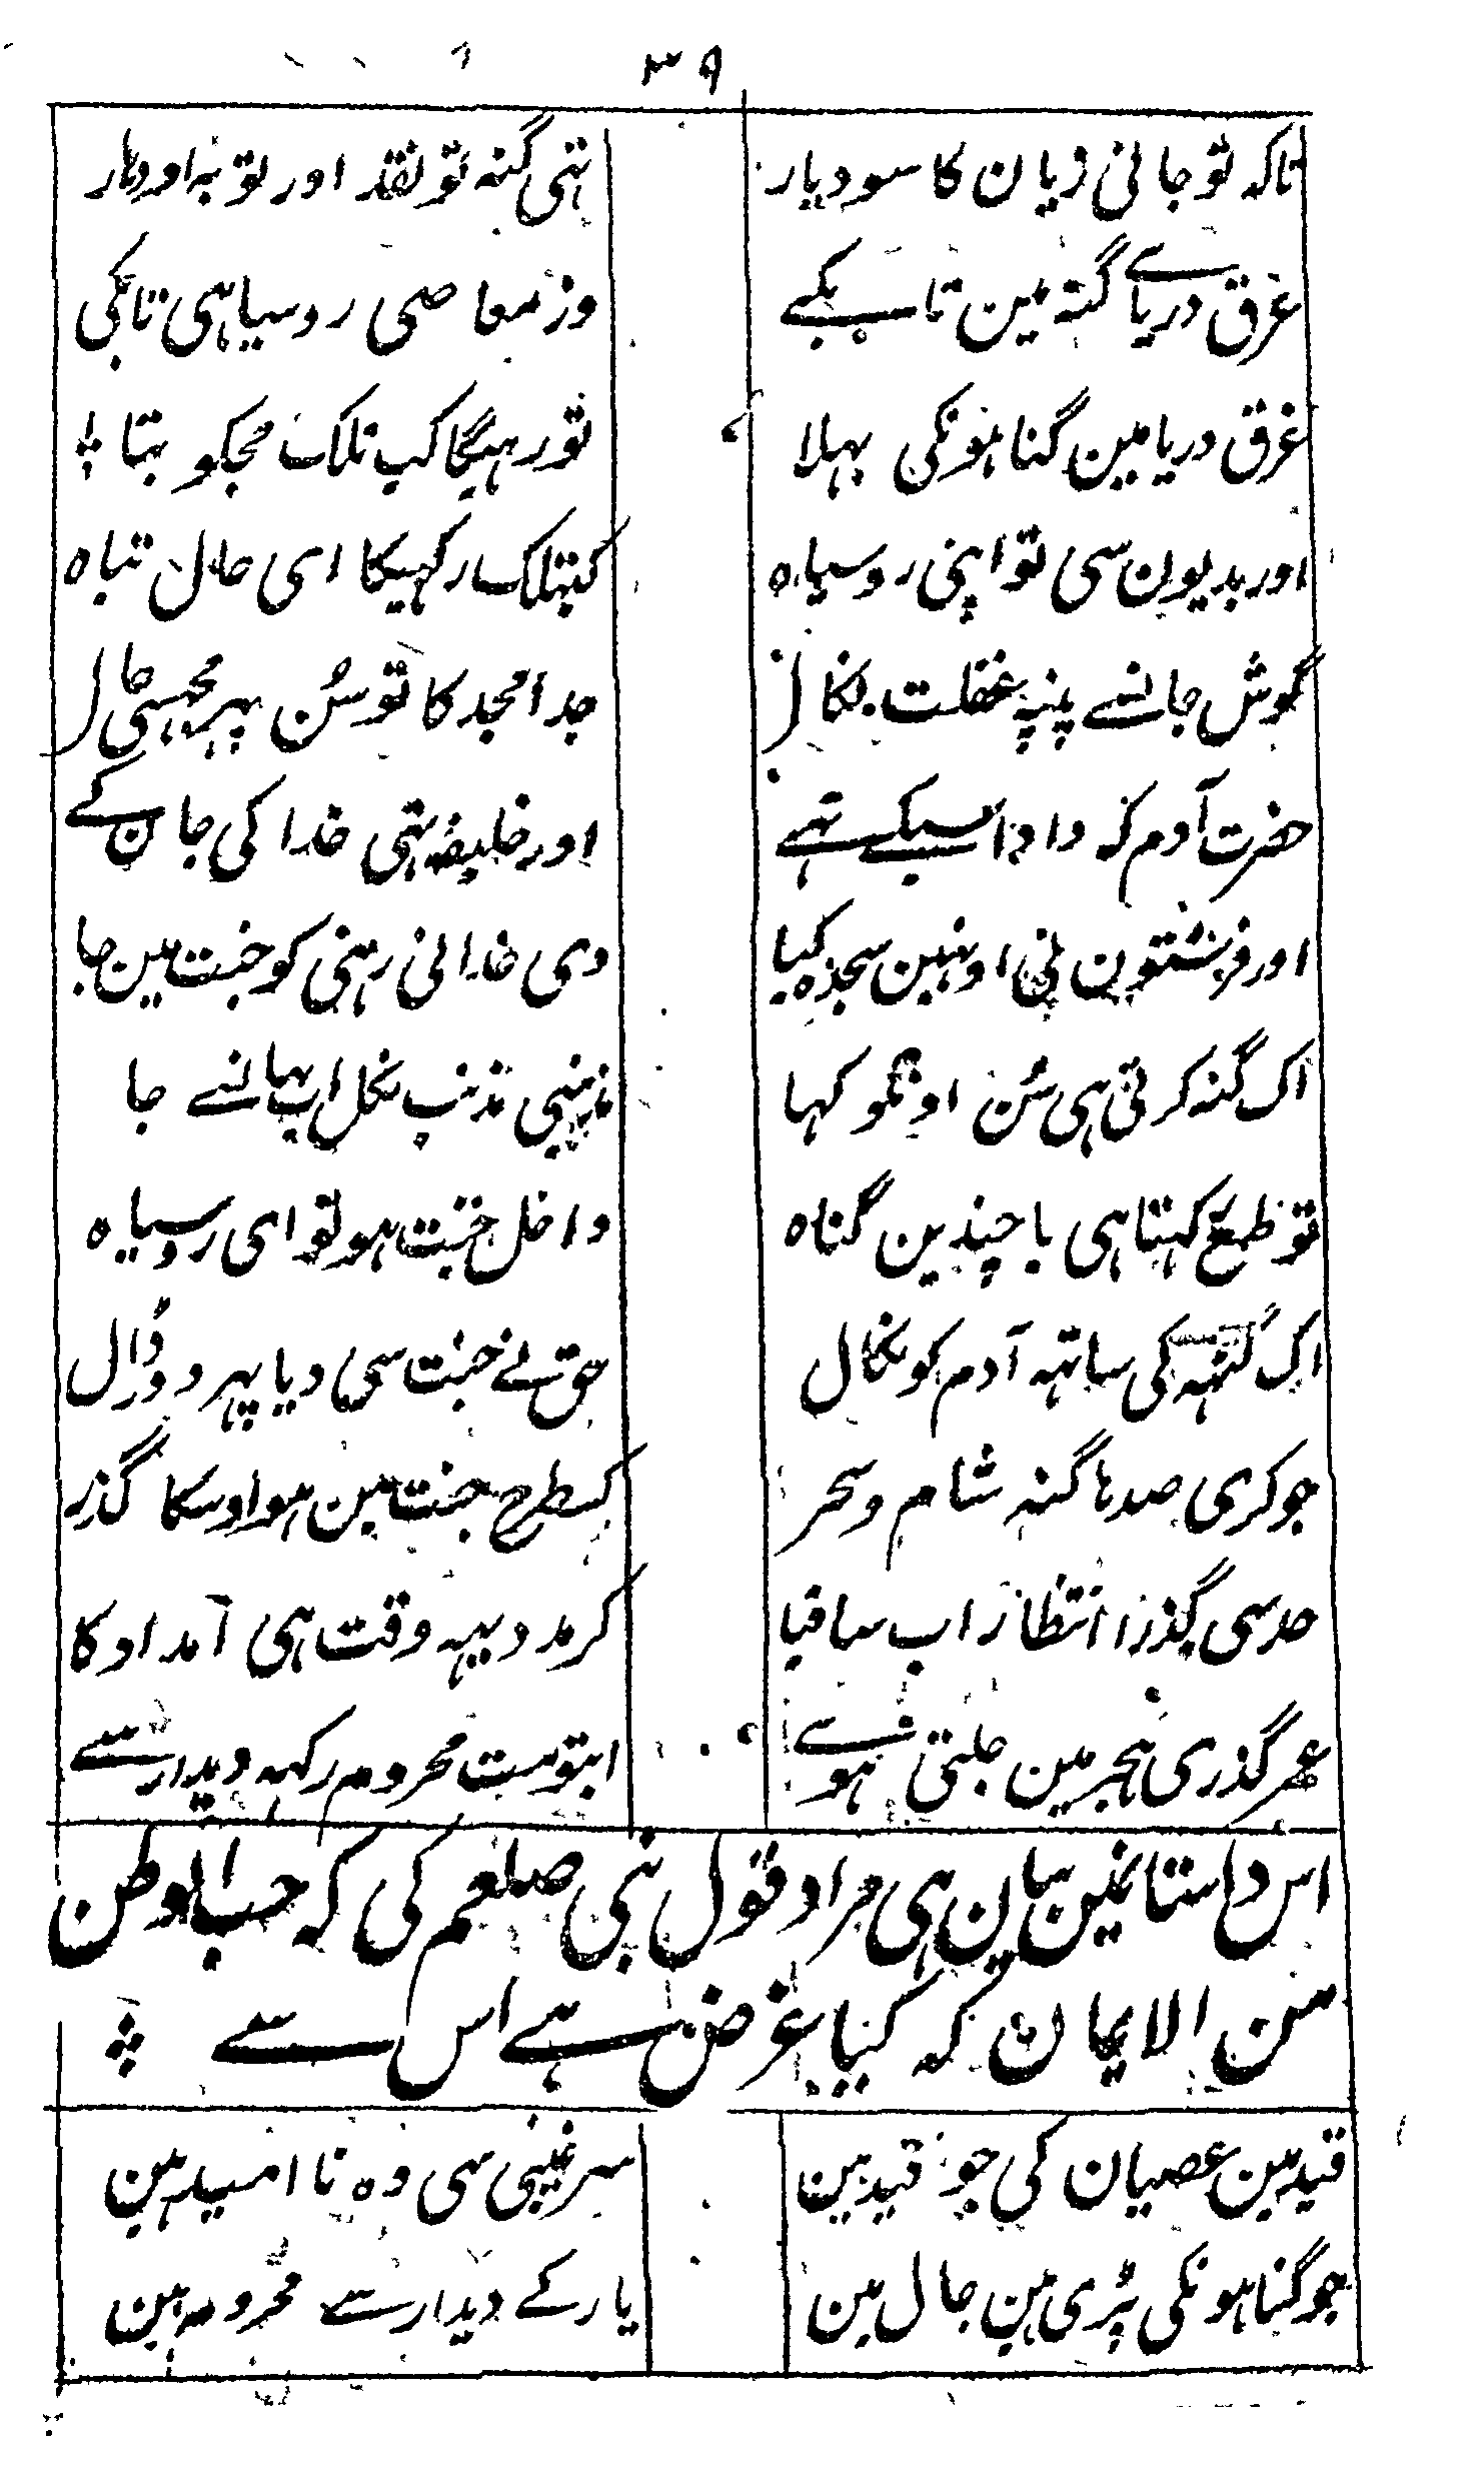 ۳۹
تاکہ تو جانی زیان کا سود یار
ہتی گنہ تو نقد اور توبہ اودہار
غرق دریاے گنہ مین تا بکے
وز معاصی روسیاہی تابکی
غرق دریا مین گناہونکی بہلا
تو رہیگا کب تلک مجکو بتا
اور بدیون سی تو اپنی روسیاہ
کبتلک رکہیگا اسی حال تباہ
گوش جانسے پنبہ غفلت نکال
جد امجد کا تو سُن پہر مجہسی حال
حضرت آدم کہ دادا سبکے تہے
اور خلیفہ تہی خدا کی جان کے
اور فرشتون نی اونہین سجدہ کیا
دی خدا نی رہنی کو جنت مین جا
اک گنہ کرتی ہی سُن اونکو کہا
مذنبی مذنب نکل اب یہانسے جا
تو طمع کہتا ہی با چندین گناہ
داخل جنت ہو تو ای روسیاہ
اک گنہہ کی ساتہہ آدم کو نکال
حق نے جنت سی دیا پہر دور ڈال
جو کری صدہا گنہ شام و سحر
کسطرح جنت مین ہو اوسکا گذر
حد سی گذرا انتظار اب ساقیا
کر مدد یہہ وقت ہی امداد کا
عمر گذری ہجر مین جلتی ہوے
ابتو مت محروم رکہہ دیدار سے
اس داستانمین بیان ہی مراد قول نبی صلعم کی کہ حب الوطن
من الایمان کہ کیا غرض ہے اس سے
قید مین عصیان کی جو قید ہین
سر غیبی سی وہ نا امید ہین
جو گناہونکی پڑی ہین جال مین
یار کے دیدار سے محروم ہین